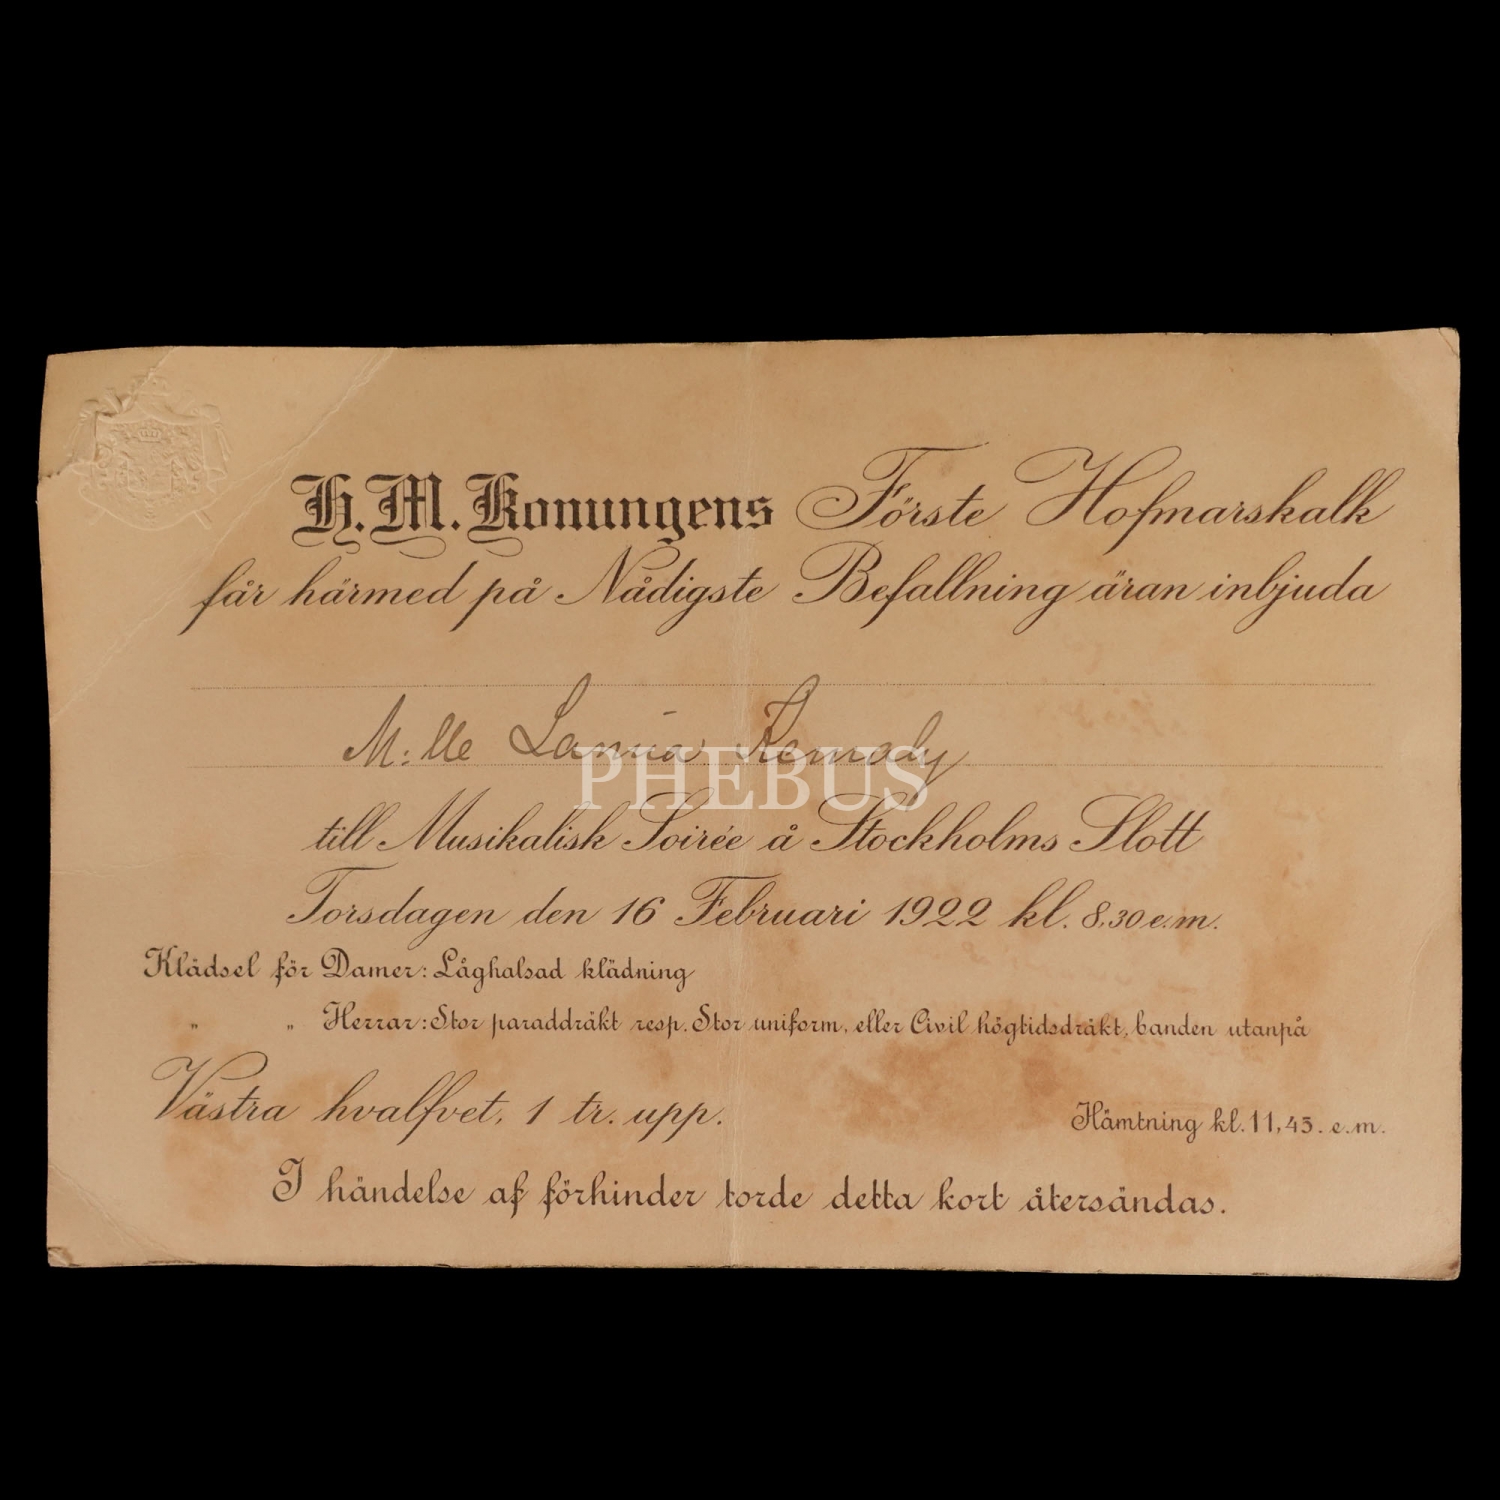 H. M. Konungens Förste Hofmarskalk
får härmed på Nådigste Befallning äran inbjuda
M:lle Lamia
PHEBUS
till Musikalisk Soirée å Stockholms Slott
Torsdagen den 16 Februari 1922 kl. 8,30 e.m.
Klädsel för Damer: Låghalsad klädning
" " Herrar: Stor paraddräkt resp. Stor uniform, eller Civil högtidsdräkt, banden utanpå
Västra hvalfvet, 1 tr. upp.
Hämtning kl. 11,45. e.m.
I händelse af förhinder torde detta kort återsändas.